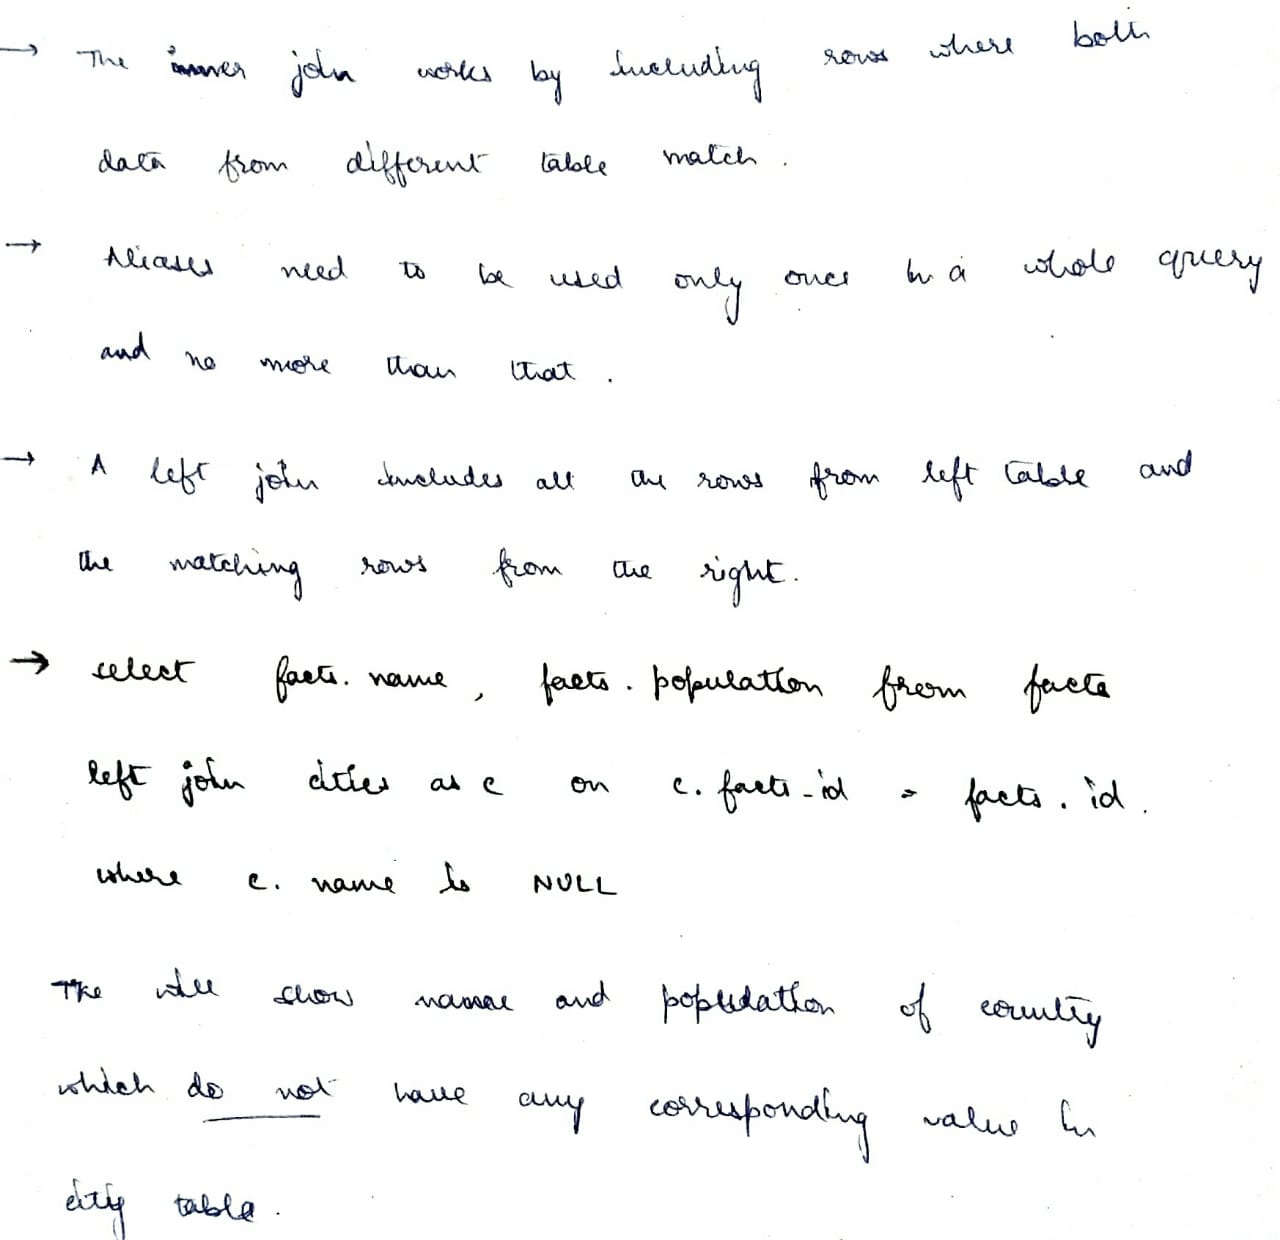 → The inner join works by including rows where both
data from different table match .
→ Aliases need to be used only once in a whole query
and no more than that .
→ A left join includes all the rows from left table and
the matching rows from the right.
→ select facts. name , facts . population from facts
left join cities as c on c. facts_id = facts . id .
where c. name is NULL
The will show name and population of country
which do not have any corresponding value in
city table .